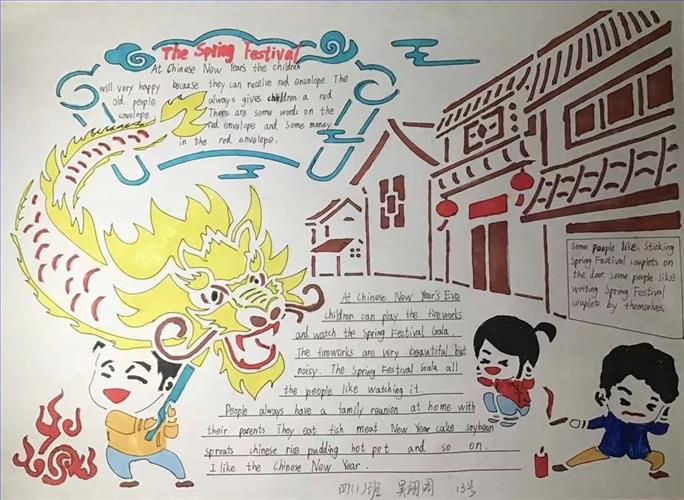 The Spring Festival
At Chinese New Year's the children
will very happy because they can receive red envelope. The
old people always gives children a red
envelope. There are some words on the
red envelope and some money
in the red envelope.
Some people like sticking
Spring Festival couplets on
the door. Some people like
writing Spring Festival
couplets by themselves.
At Chinese New Year's Eve
children can play the fireworks
and watch the Spring Festival Gala.
The fireworks are very beautiful but
noisy. The Spring Festival Gala all
the people like watching it.
People always have a family reunion at home with
their parents They eat fish meat New Year cake soybean
sprouts chinese rice pudding hot pot and so on.
I like the Chinese New Year.
四(1)班 吴翊 13号